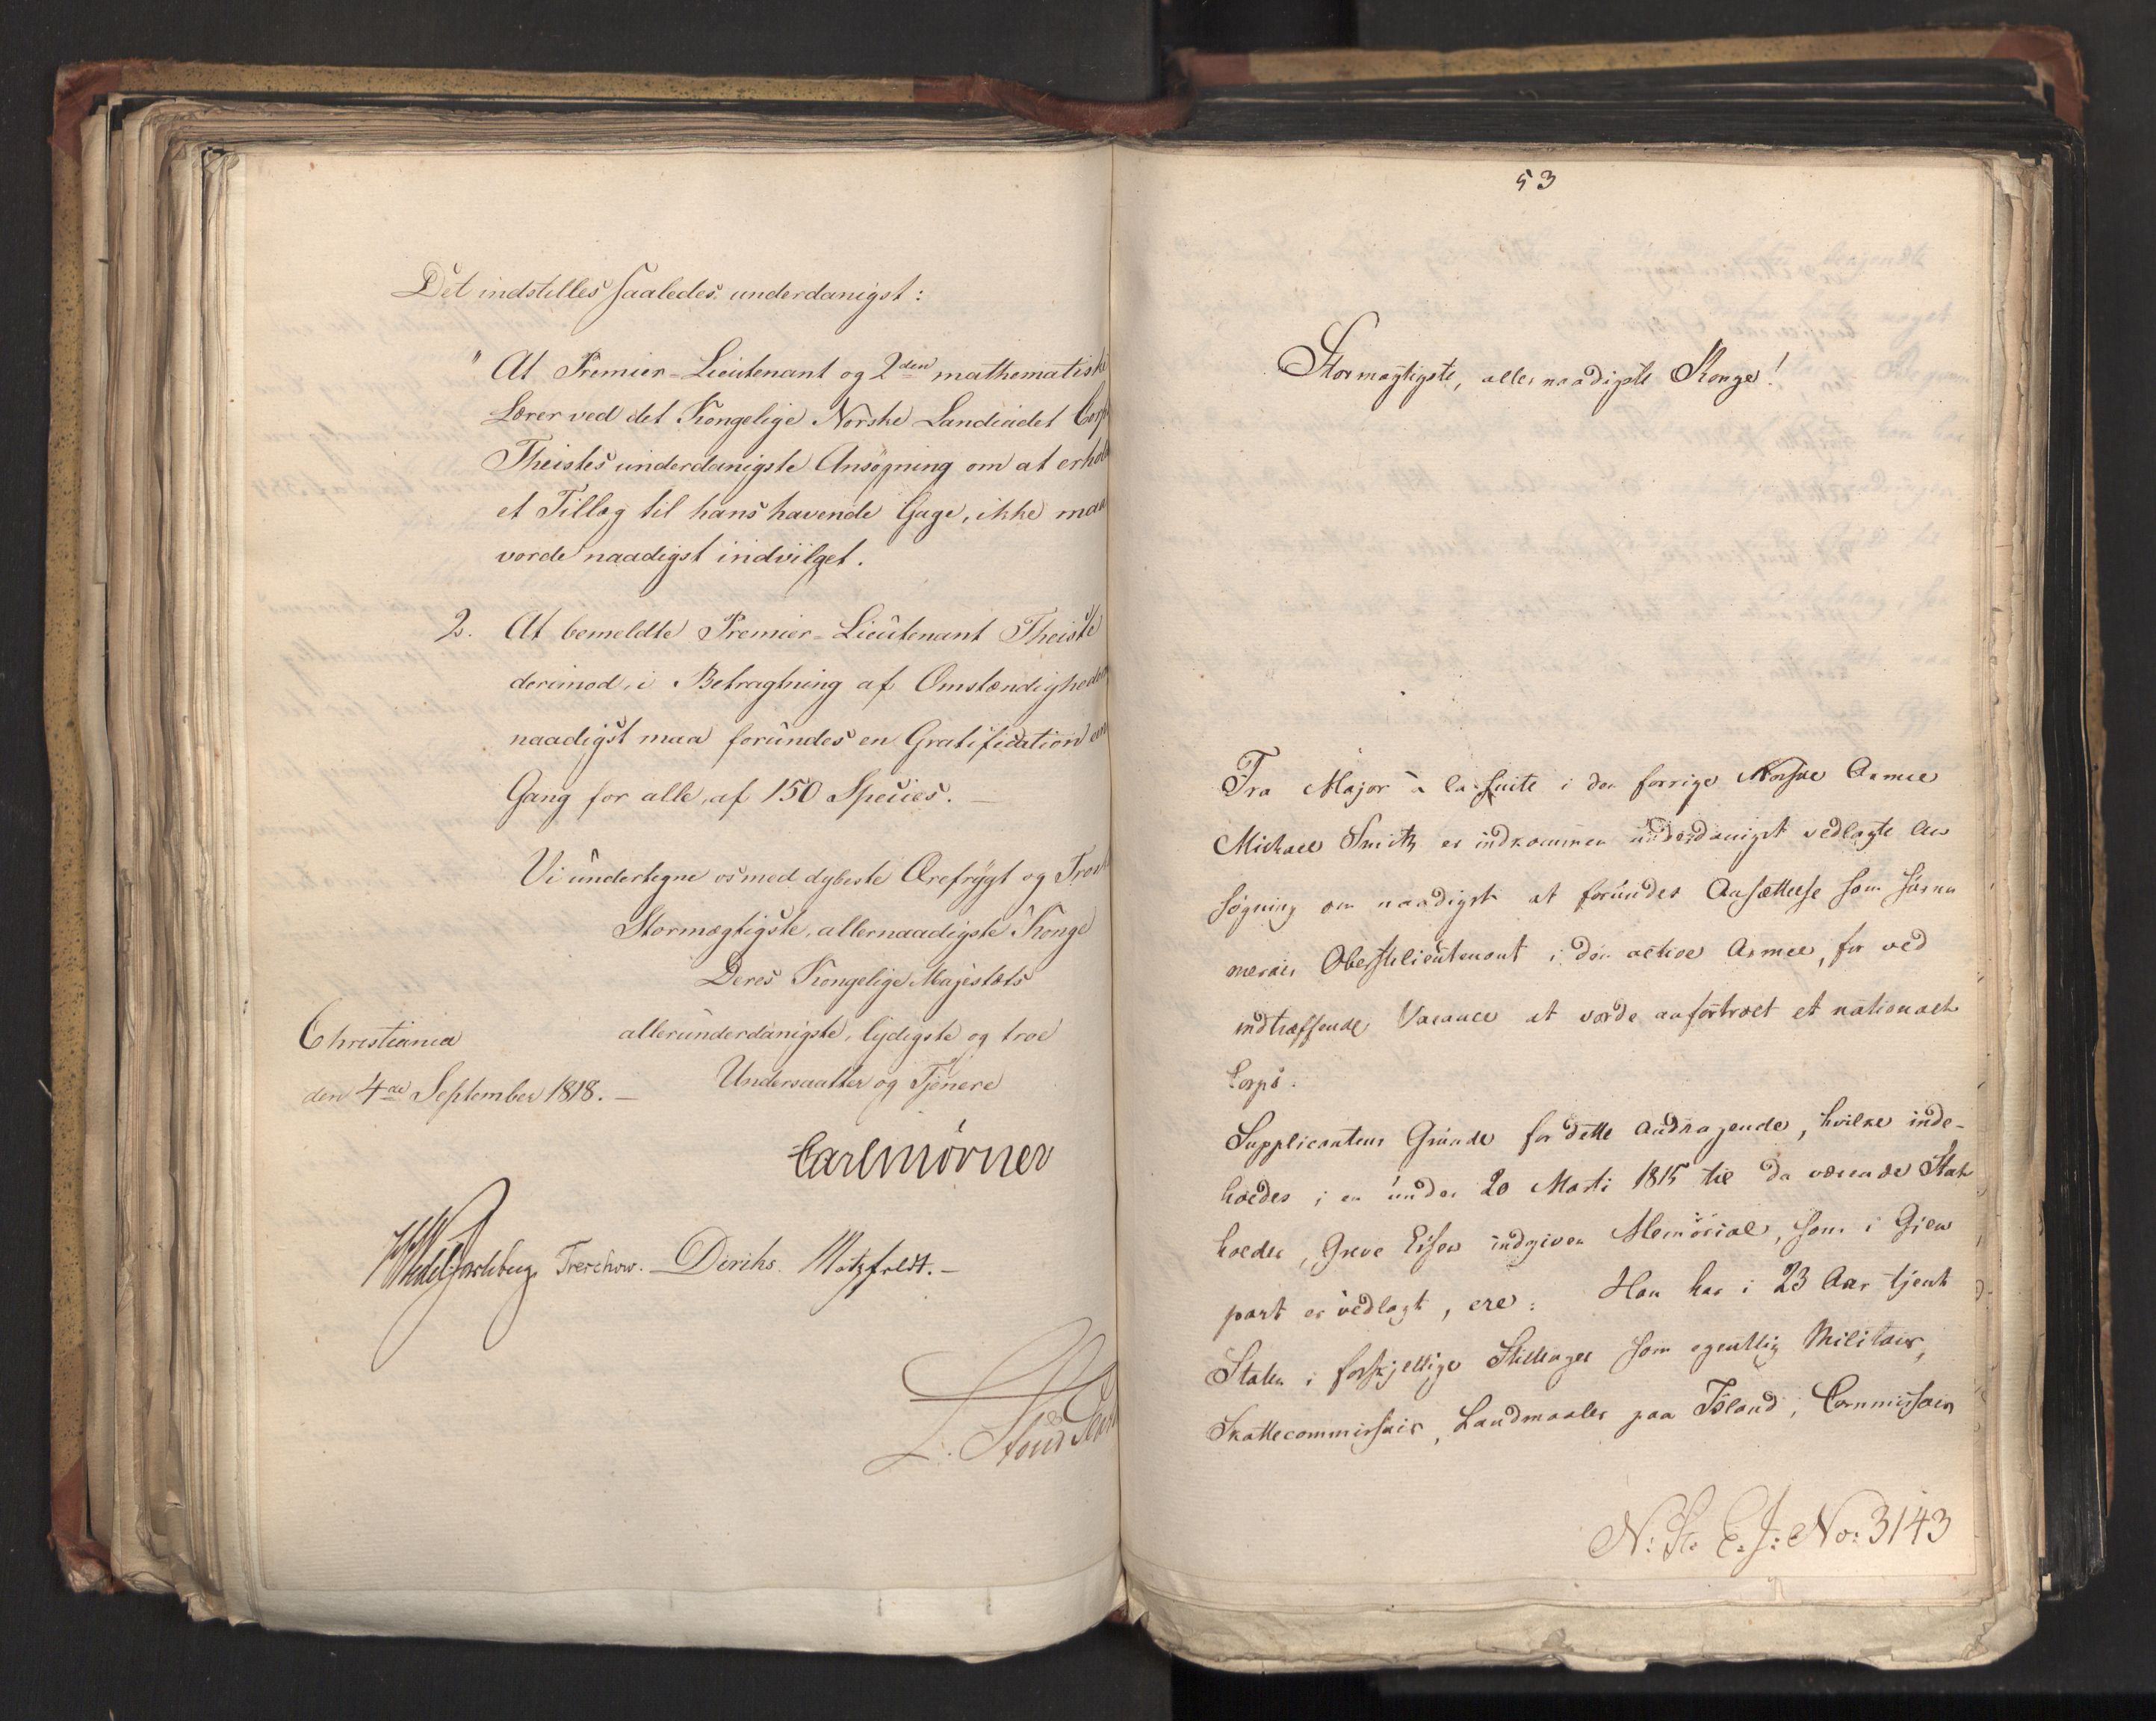 Det indstilles saaledes underdanigst:
" At Premier-Lieutenant og 2den mathematiske
Lærer ved det Kongelige Norske Landcadet Corps
Theistes underdanigste Ansøgning om at erholde
et Tillæg til hans havende Gage, ikke maa
vorde naadigst indvilget.
2. At bemeldte Premier-Lieutenant Theiste
derimod, i Betragtning af Omstændigheden
naadigst maa forundes en Gratification een
Gang for alle, af 150 Species. —
Vi undertegne os med dybeste Ærefrygt og Troskab
Stormægtigste, allernaadigste Konge
Deres Kongelige Majestæts
Christiania allerunderdanigste, lydigste og troe
den 4de September 1818. — Undersaatter og Tjenere
Carl Mörner
Wedel Jarlsberg. Treschow. Diriks. Motzfeldt. —
53
Stormægtigste, allernaadigste Konge!
Fra Major à la suite i den forrige Norske Armee
Michael Smith er indkommen underdanigst vedlagte An
søgning om naadigst at forundes Ansættelse som surnu
merair Oberstlieutenant i den active Armee, for ved
indtræffende Vacance at vorde anfortroet et nationalt
Corps.
Supplicantens Grunde for dette Andragende, hvilke inde-
holdes i en under 20 Marti 1815 til da værende Stat
holder, Greve Essen indgiven Memorial, som i Gien
part er vedlagt, ere: Han har i 23 Aar tjent
Staten i forskjellige Stillinger som egentlig Militair,
Skattecommissair, Landmaaler paa Island, Commissair
N: St. E. J: No: 3143